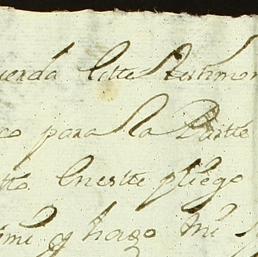 uerda Este testimon
co para la Parte
tto. Enestte pliego
mi q hago mi